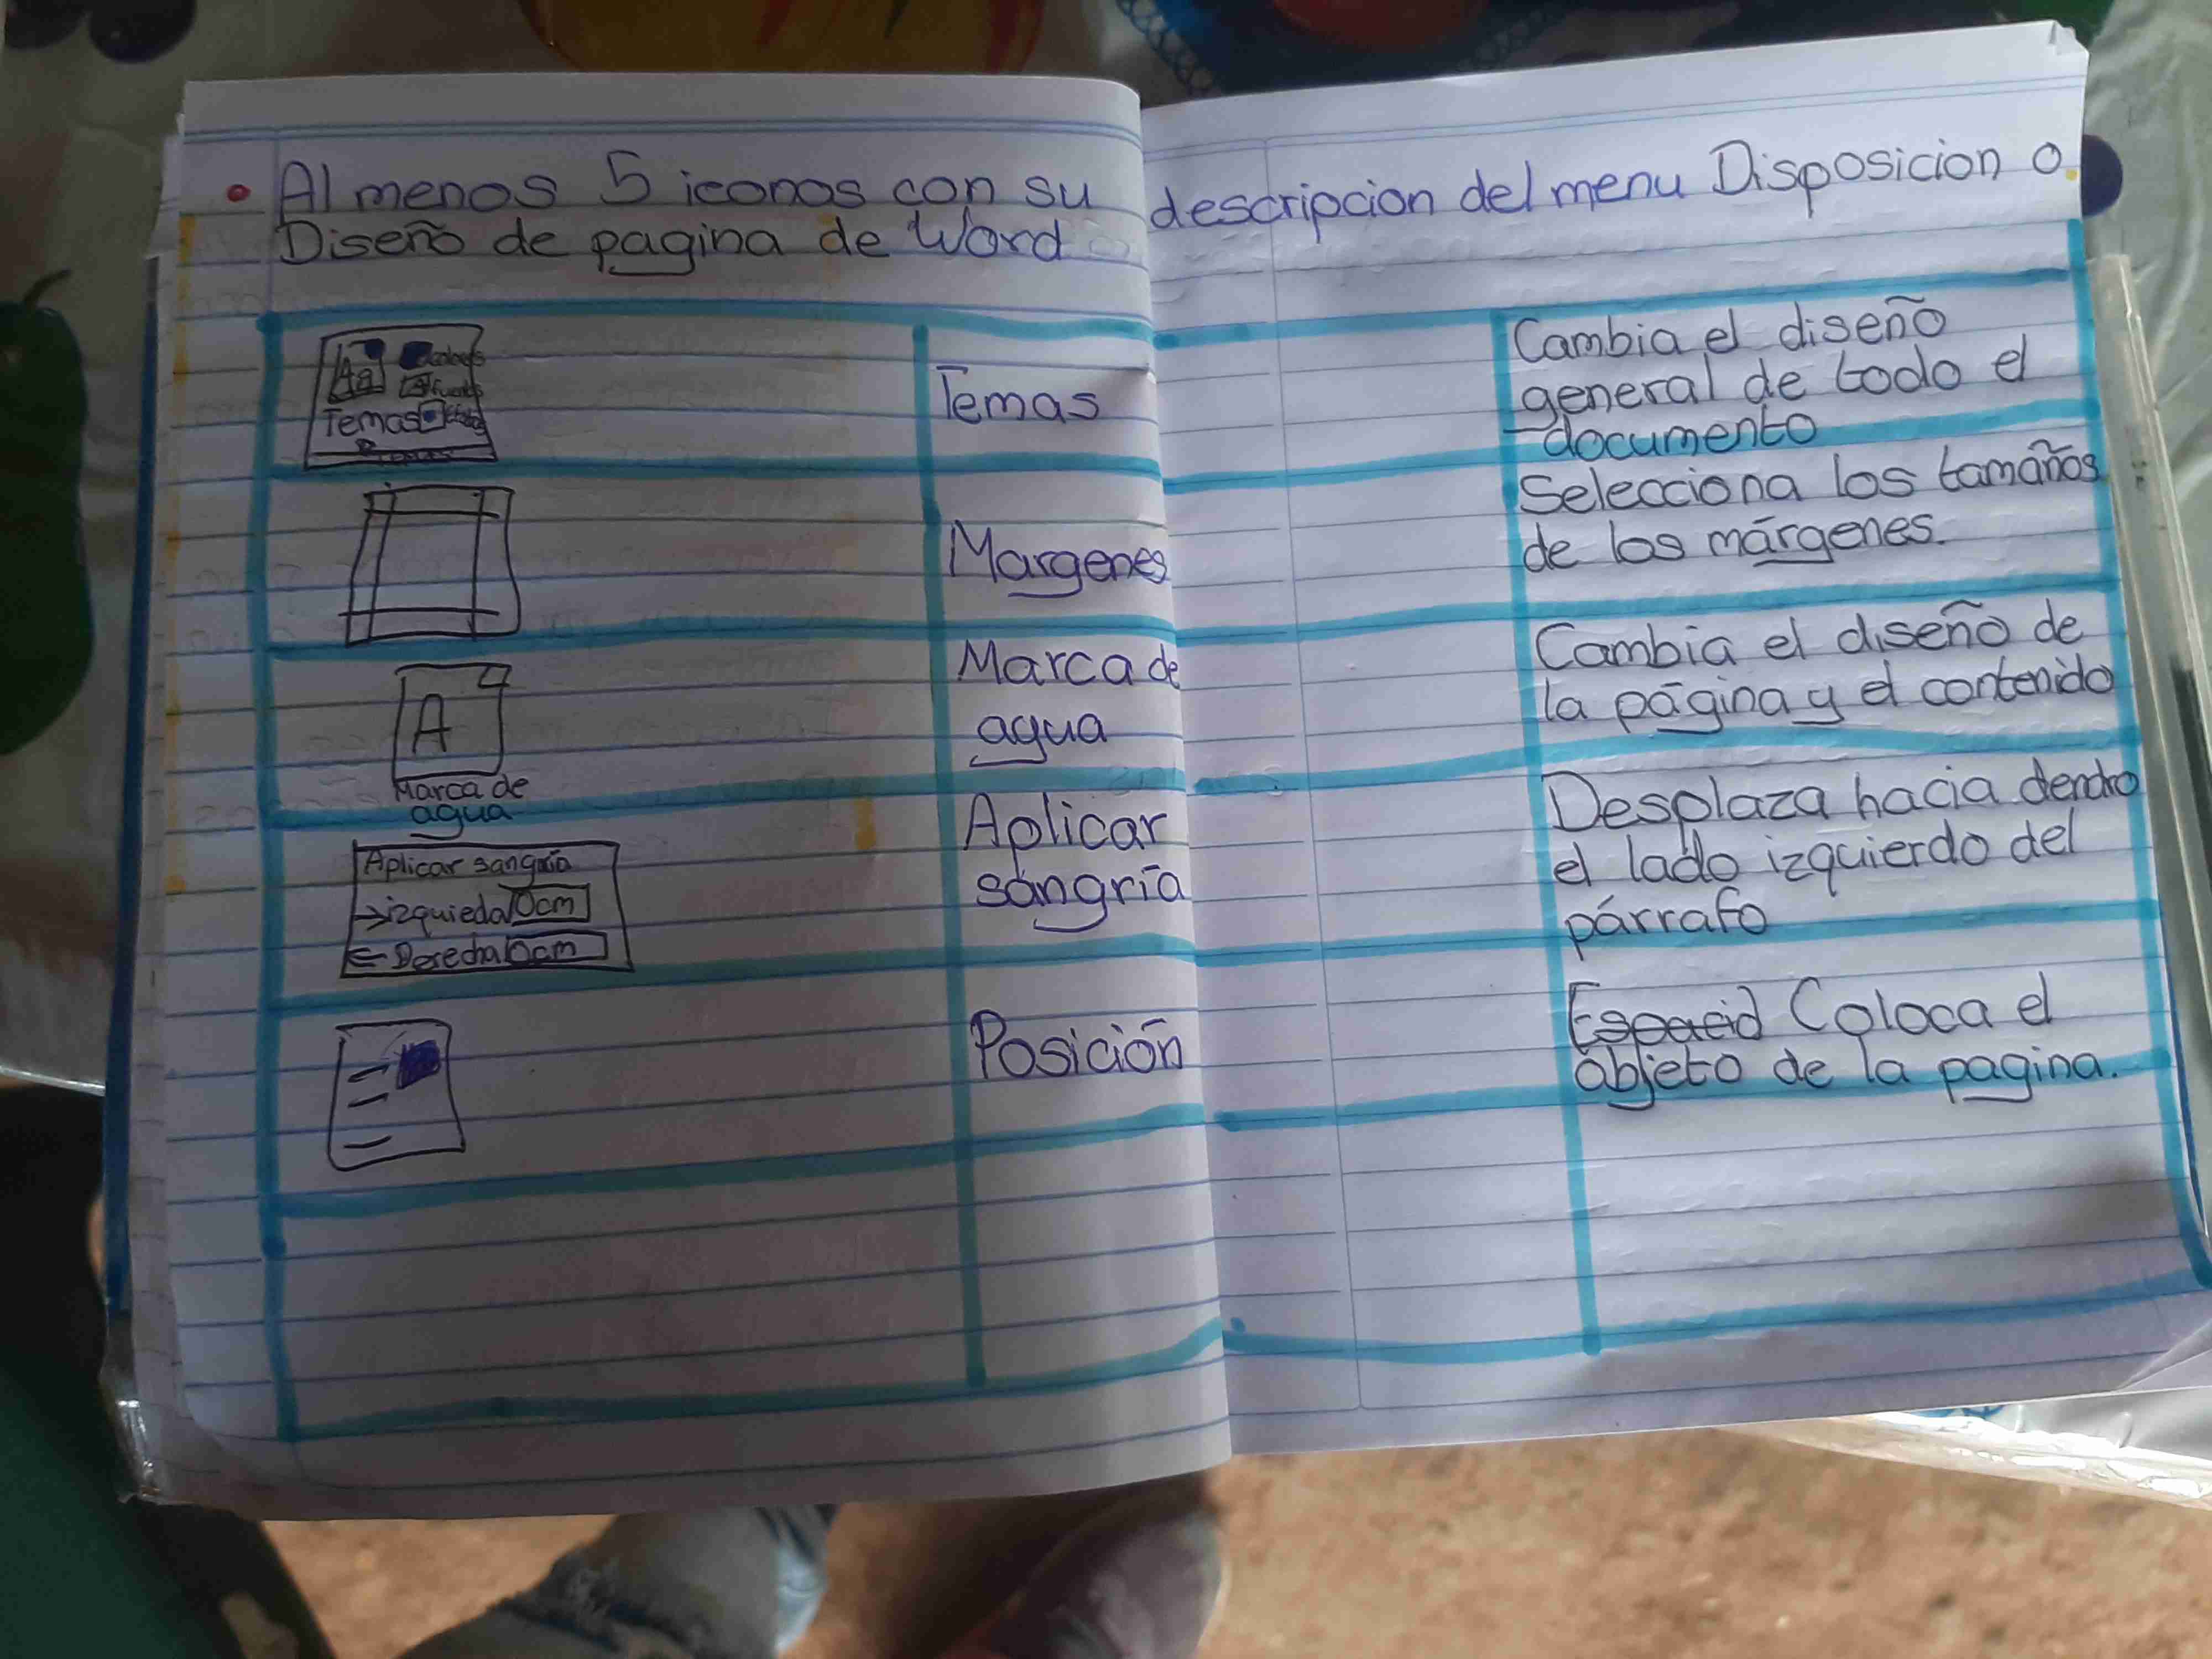 Al menos 5 iconos con su descripcion del menu Disposicion o
Diseño de pagina de Word
Temas
Temas
Cambia el diseño
general de todo el
documento
Margenes
Selecciona los tamaños
de los márgenes.
A
Marca de
agua
Marca de
agua
Cambia el diseño de
la página y el contenido
Aplicar sangría
→izquieda 0cm
← Derecha 0cm
Aplicar
sangría
Desplaza hacia dentro
el lado izquierdo del
párrafo
Posición
Espacio Coloca el
objeto de la pagina.